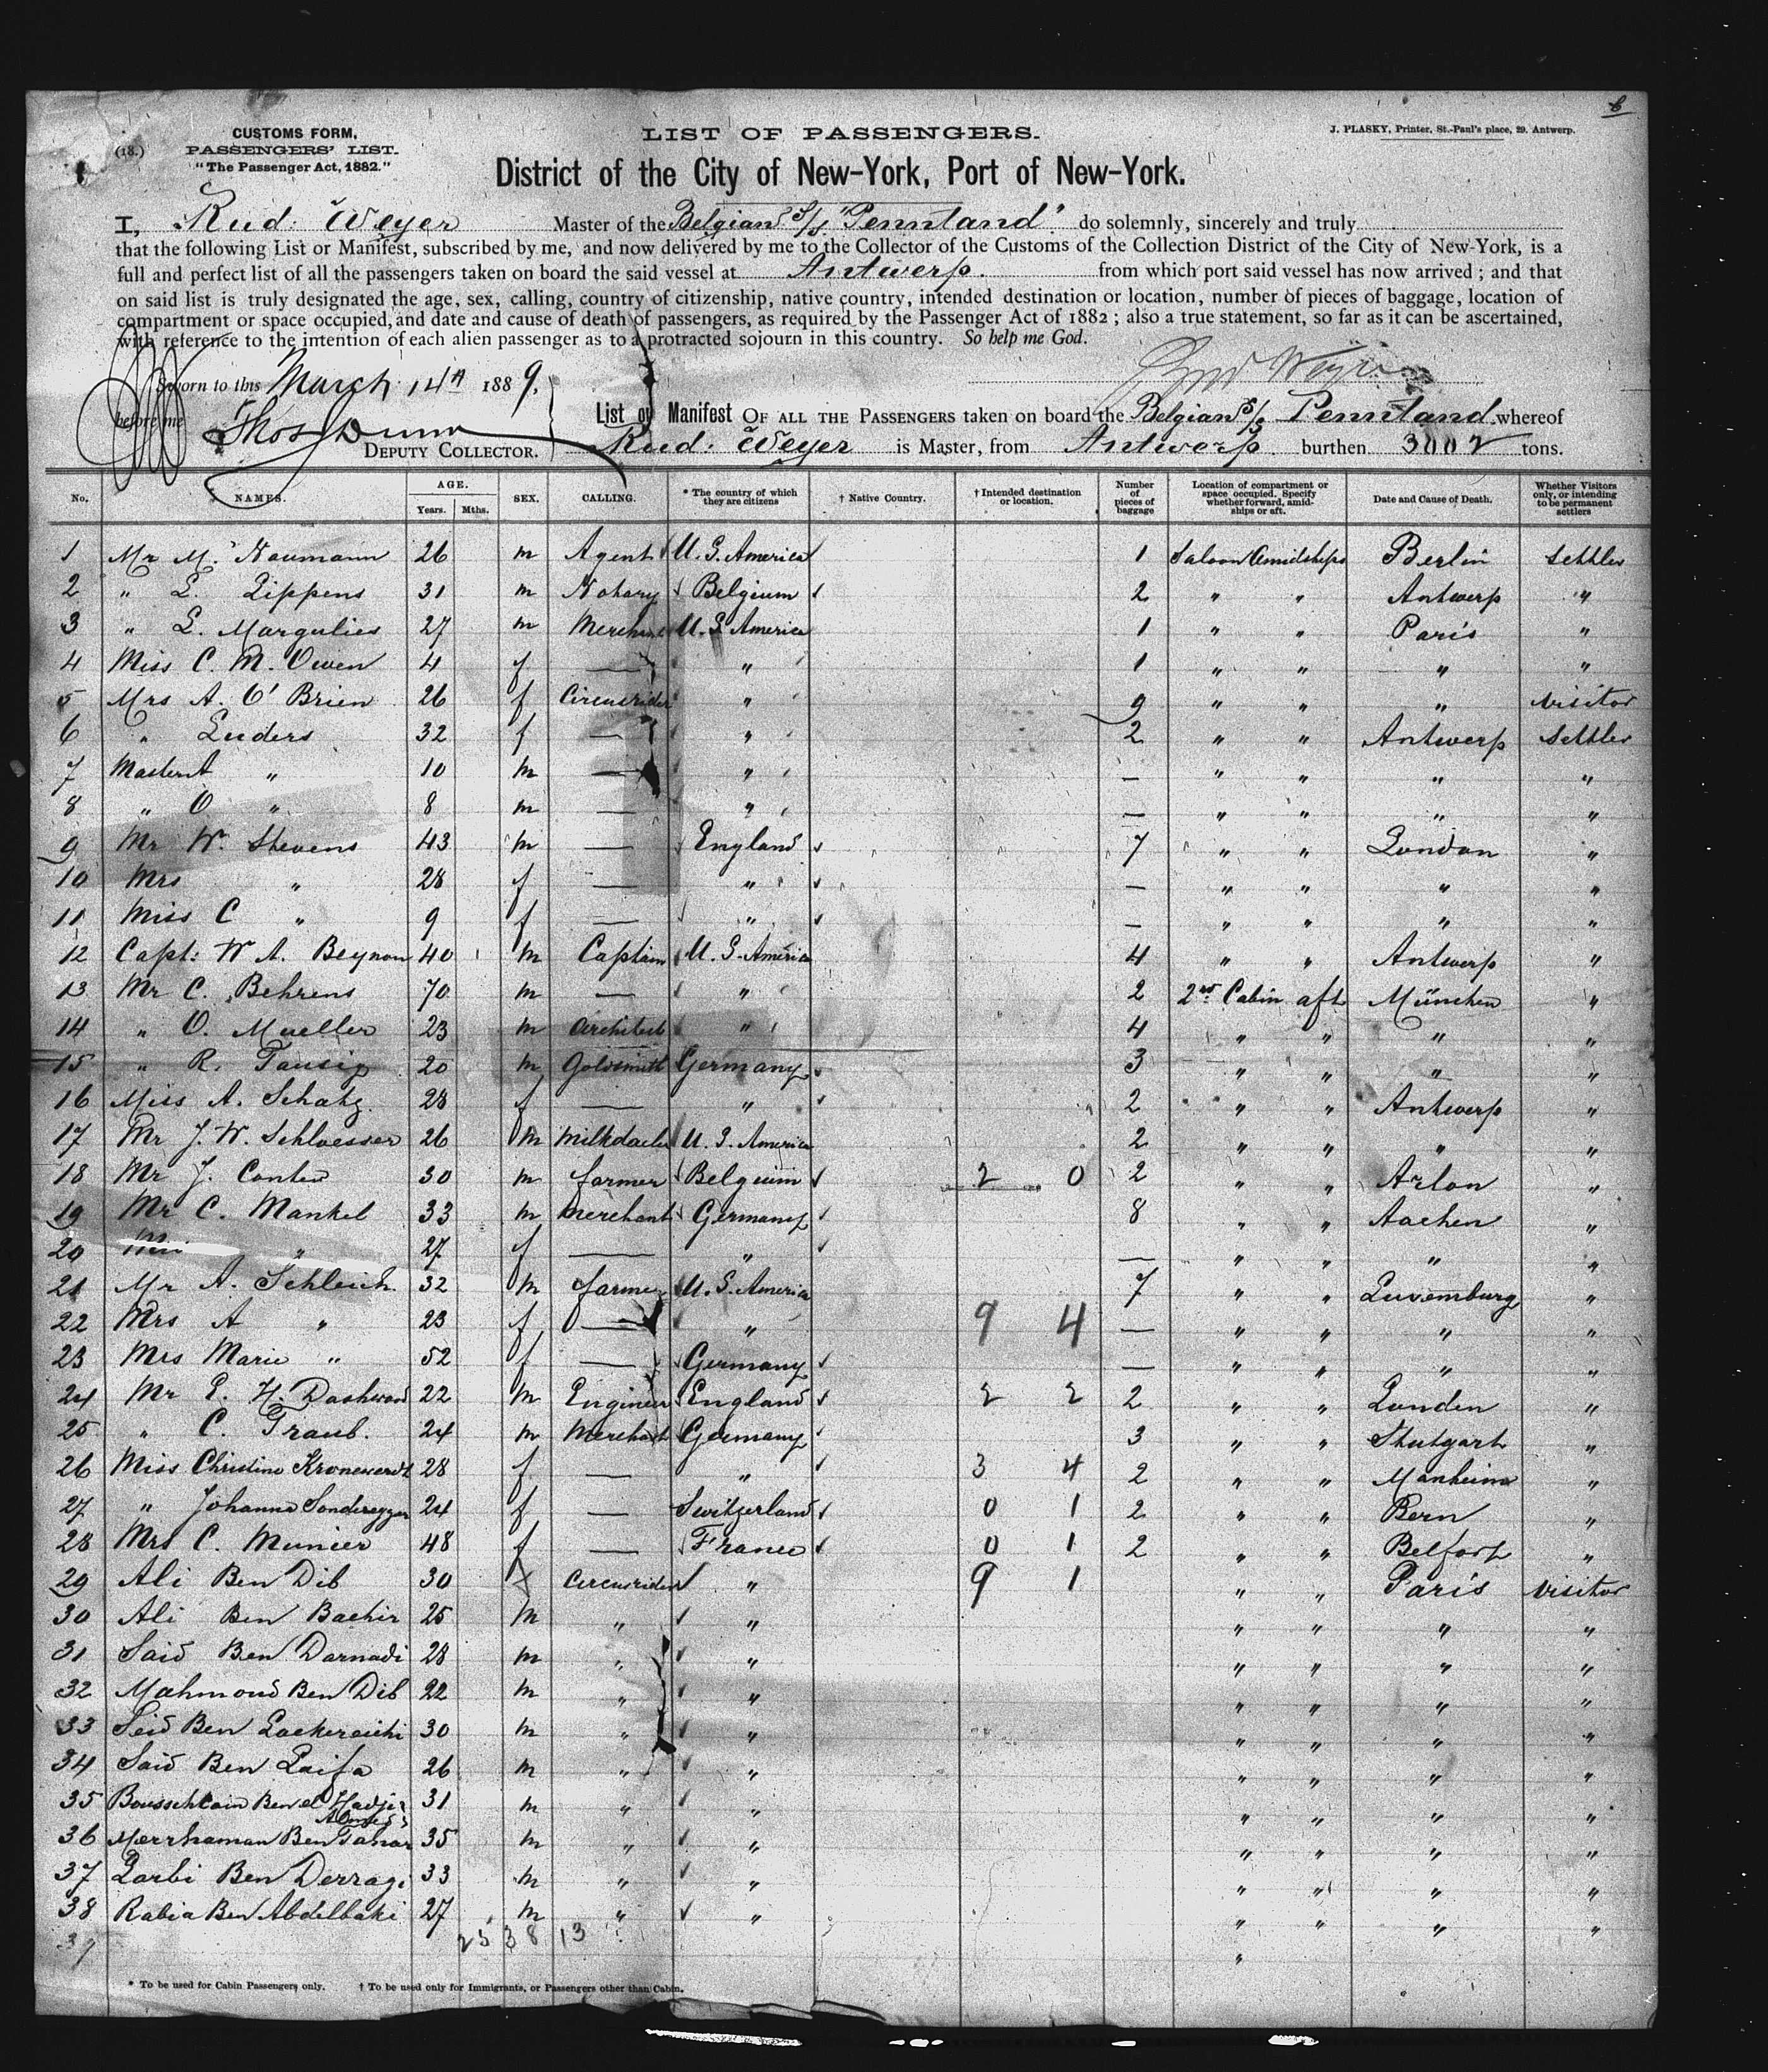 6
(18.)
CUSTOMS FORM.
PASSENGERS' LIST.
"The Passenger Act, 1882."
LIST OF PASSENGERS.
J. PLASKY, Printer, St.-Paul's place, 29. Antwerp.
District of the City of New-York, Port of New-York.
I, Rud: Weyer Master of the Belgian S/S "Pennland". do solemnly, sincerely and truly
that the following List or Manifest, subscribed by me, and now delivered by me to the Collector of the Customs of the Collection District of the City of New-York, is a
full and perfect list of all the passengers taken on board the said vessel at Antwerp. from which port said vessel has now arrived; and that
on said list is truly designated the age, sex, calling, country of citizenship, native country, intended destination or location, number of pieces of baggage, location of
compartment or space occupied, and date and cause of death of passengers, as required by the Passenger Act of 1882; also a true statement, so far as it can be ascertained,
with reference to the intention of each alien passenger as to a protracted sojourn in this country. So help me God.
Rud Weyer
Sworn to this March 14th 1889.
before me Thos Dunn
DEPUTY COLLECTOR.
List or Manifest OF ALL THE PASSENGERS taken on board the Belgian S/S Pennland whereof
Rud: Weyer is Master, from Antwerp. burthen 3002 tons.
No. NAMES. AGE. Years. Mths. SEX. CALLING. * The country of which they are citizens † Native Country. † Intended destination or location. Number of pieces of baggage Location of compartment or space occupied. Specify whether forward, amidships or aft. Date and Cause of Death. Whether Visitors only, or intending to be permanent settlers
1 Mr M. Naumann 26 m Agent U. S. America 1 Saloon Amidships Berlin Settler
2 " L. Lippens 31 m Notary Belgium 2 " " Antwerp "
3 " L. Margulies 27 m U. S. America 1 " " Paris "
4 Miss C. M. Owen 4 f — " 1 " " " "
5 Mrs A. O'Brien 26 f Circusrider " 9 " " " visitor
6 " Luders 32 f — " 2 " " Antwerp Settler
7 Master A " 10 m — " — " " " "
8 " O " 8 m — " — " " " "
9 Mr W. Stevens 43 m — England 7 " " London "
10 Mrs " 28 f — " — " " " "
11 Miss C " 9 f — " — " " " "
12 Capt: W A. Beynon 40 m Captain U. S. America 4 " " Antwerp "
13 Mr C. Behrens 70 m — " 2 2nd Cabin aft München "
14 " O. Mueller 23 m Architect " 4 " " " "
15 " R. Tausig 20 m Goldsmith Germany 3 " " " "
16 Miss A. Schatz 28 f — " 2 " " Antwerp "
17 Mr J. W. Schloesser 26 m U. S. America 2 " " " "
18 Mr J. Conter 30 m farmer Belgium 2 0 2 " " Arlon "
19 Mr C. Mankel 33 m Merchant Germany 8 " " Aachen "
20 " 27 f — " — " " " "
21 Mr A. Schleich 32 m farmer U. S. America 7 " " Luxemburg "
22 Mrs A " 23 f — " 9 4 — " " " "
23 Mrs Marie " 52 f — Germany — " " " "
24 Mr E. H. Dashwood 22 m Engineer England 2 2 2 " " London "
25 " C. Traub. 24 m Merchant Germany 3 " " Stutgart "
26 Miss Christine 28 f — " 3 4 2 " " Manheim "
27 " Johanna Sonderegger 24 f — Switzerland 0 1 2 " " Bern "
28 Mrs C. Munier 48 f — France 0 1 2 " " Belfort "
29 Ali Ben Dib 30 Circusrider " 9 1 " " Paris visitor
30 Ali Ben Bachir 25 m " " " " " "
31 Said Ben Darnadi 28 m " " " " " "
32 Mahmoud Ben Dib 22 m " " " " " "
33 Seid Ben 30 m " " " " " "
34 Said Ben Laifa 26 m " " " " " "
35 Ben el Hadje 31 m " " " " " "
Ahmed
36 Ben Tahar 35 m " " " " " "
37 Larbi Ben Derragi 33 m " " " " " "
38 Rabia Ben Abdelbaki 27 m " " " " " "
39 25 38 13 "
* To be used for Cabin Passengers only. † To be used only for Immigrants, or Passengers other than Cabin.